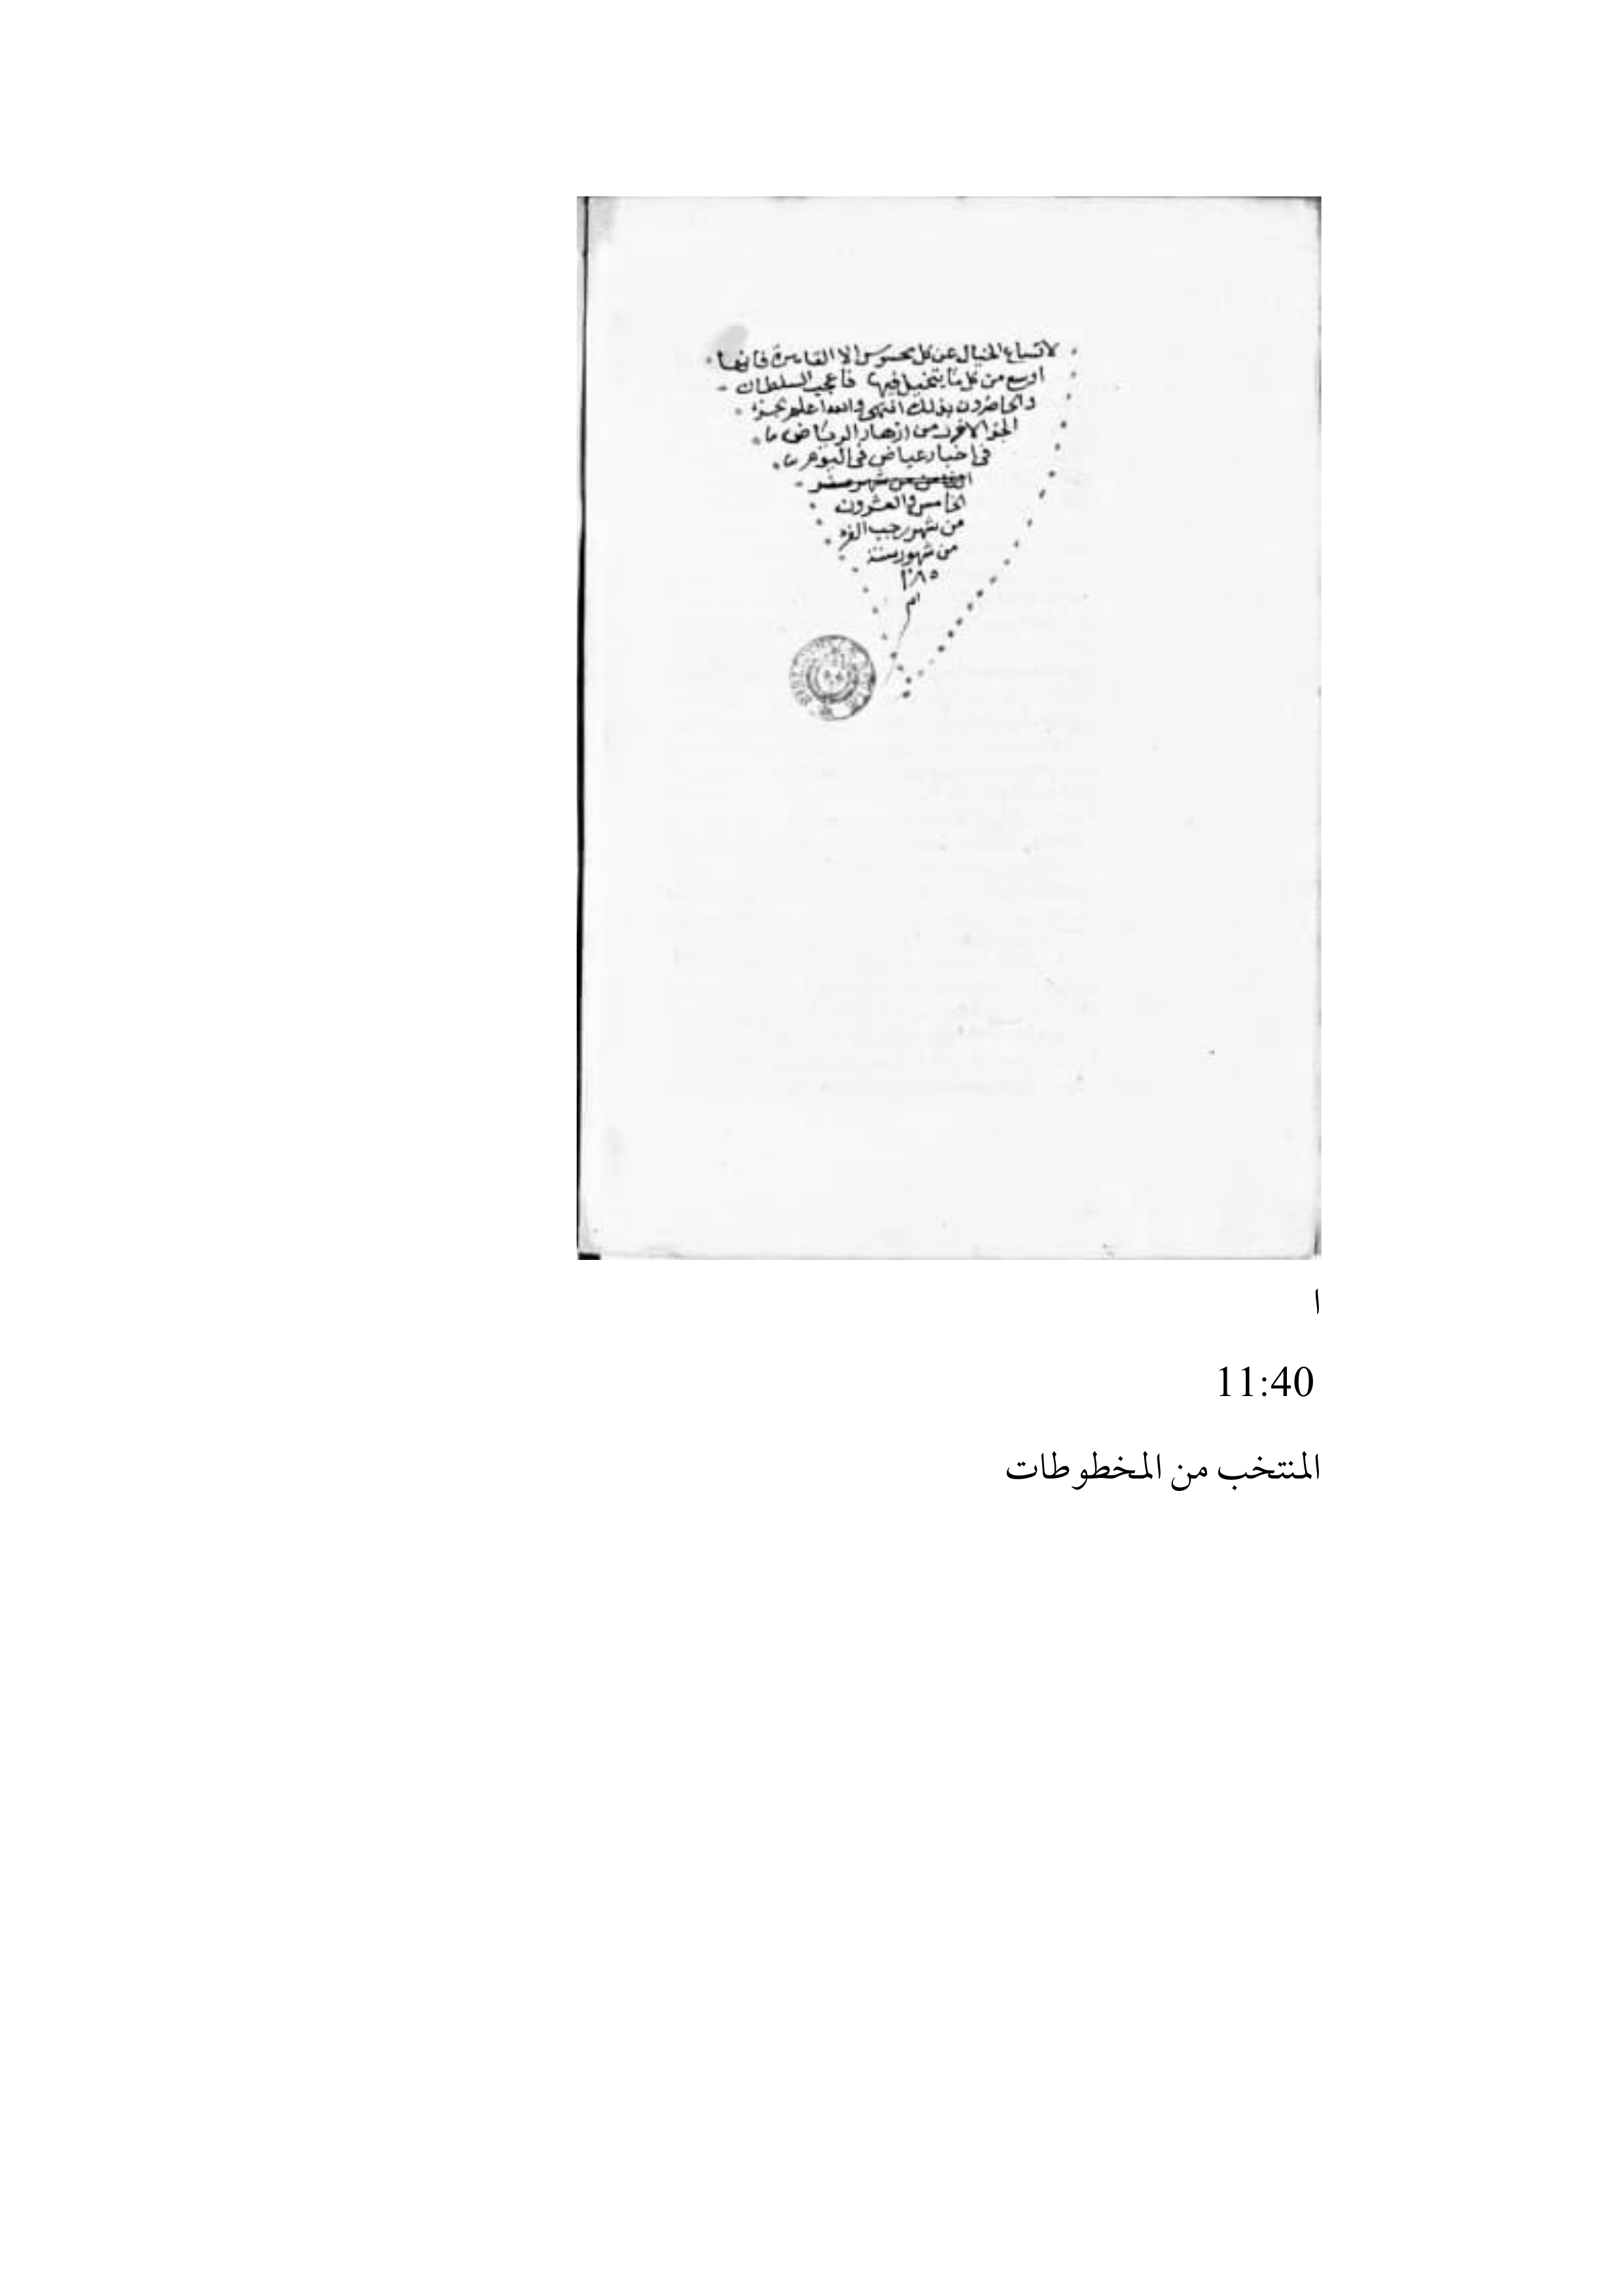 لاتساع الخيال عن كل محسوس الا القاهرة فانها
اوسع من كل ما يتخيل فيها فاعجب السلطان
والحاضرون بذلك انتهى والله اعلم نجز
الجزء الاخر من ازهار الرياض
فى اخبار عياض فى اليوم
من شهر
الخامس والعشرون
من شهر رجب الفرد
من شهور سنة
١٠٨٥
ا
11:40
المنتخب من المخطوطات